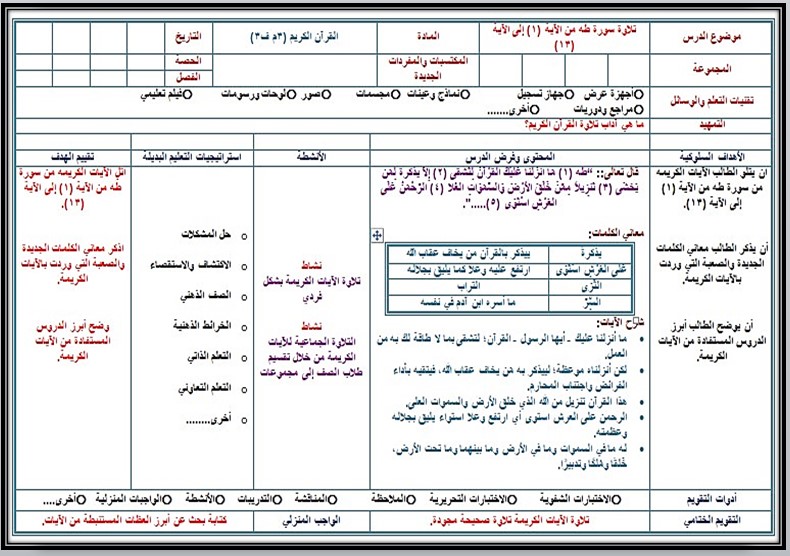 موضوع الدرس
تلاوة سورة طه من الآية (١) إلى الآية (١٣)
المادة
القرآن الكريم (٣م ف٣)
التاريخ
المجموعة
المكتسبات والمفردات الجديدة
الحصة
الفصل
تقنيات التعلم والوسائل
Oأجهزة عرض Oجهاز تسجيل Oنماذج وعينات Oمجسمات Oصور Oلوحات ورسومات Oفيلم تعليمي
Oمراجع ودوريات Oأخرى.......
التمهيد
ما هي آداب تلاوة القرآن الكريم؟
الأهداف السلوكية
المحتوى وعرض الدرس
الأنشطة
استراتيجيات التعليم البديلة
تقييم الهدف
ان يتلو الطالب الآيات الكريمه
من سورة طه من الآية (١)
إلى الآية (١٣).
أن يذكر الطالب معاني الكلمات
الجديدة والصعبة التي وردت
بالآيات الكريمة.
أن يوضح الطالب أبرز
الدروس المستفادة من الآيات
الكريمة.
قال تعالى:: "طه (١) مَا أَنزَلْنَا عَلَيْكَ الْقُرْآنَ لِتَشْقَى (٢) إِلَّا تَذْكِرَةً لِّمَن
يَخْشَى (٣) تَنزِيلًا مِّمَّنْ خَلَقَ الْأَرْضَ وَالسَّمَوَاتِ الْعُلَا (٤) الرَّحْمَنُ عَلَى
الْعَرْشِ اسْتَوَى (٥)....."
معاني الكلمات:
يذكرة
بيذكر بالقرآن من يخاف عقاب الله
عَلَى الْعَرْشِ اسْتَوَى
ارتفع عليه وعلا كما يليق بجلاله
الثَّرَى
التراب
السِّرَّ
ما أسره ابن آدم في نفسه
شارح الآيات:
ما أنزلنا عليك ـ أيها الرسول ـ القرآن؛ لتشقى بما لا طاقة لك به من
العمل.
لكن أنزلناه موعظة؛ ليبذكر به من يخاف عقاب الله، فيتقيه بأداء
الفرائض واجتناب المحارم.
هذا القرآن تنزيل من الله الذي خلق الأرض والسموات العلى.
الرحمن على العرش استوى أي ارتفع وعلا استواء يليق بجلاله
وعظمته.
له ما في السموات وما في الأرض وما بينهما وما تحت الأرض،
خَلْقًا ومُلْكًا وتدبيرًا.
نشاط
تلاوة الآيات الكريمة بشكل
فردي
نشاط
التلاوة الجماعية للآيات
الكريمة من خلال تقسيم
طلاب الصف إلى مجموعات
o حل المشكلات
o الاكتشاف والاستقصاء
o الصف الذهني
o الخرائط الذهنية
o التعلم الذاتي
o التعلم التعاوني
o أخرى........
اتل الآيات الكريمه من سورة
طه من الآية (١) إلى الآية
(١٣).
اذكر معاني الكلمات الجديدة
والصعبة التي وردت بالآيات
الكريمة.
وضح أبرز الدروس
المستفادة من الآيات
الكريمة.
أدوات التقويم
Oالاختبارات الشفوية Oالاختبارات التحريرية Oالملاحظة Oالمناقشة Oالتدريبات Oالأنشطة Oالواجبات المنزلية Oأخرى....
التقويم الختامي
تلاوة الآيات الكريمة تلاوة صحيحة مجودة.
الواجب المنزلي
كتابة بحث عن أبرز العظات المستنبطة من الآيات.